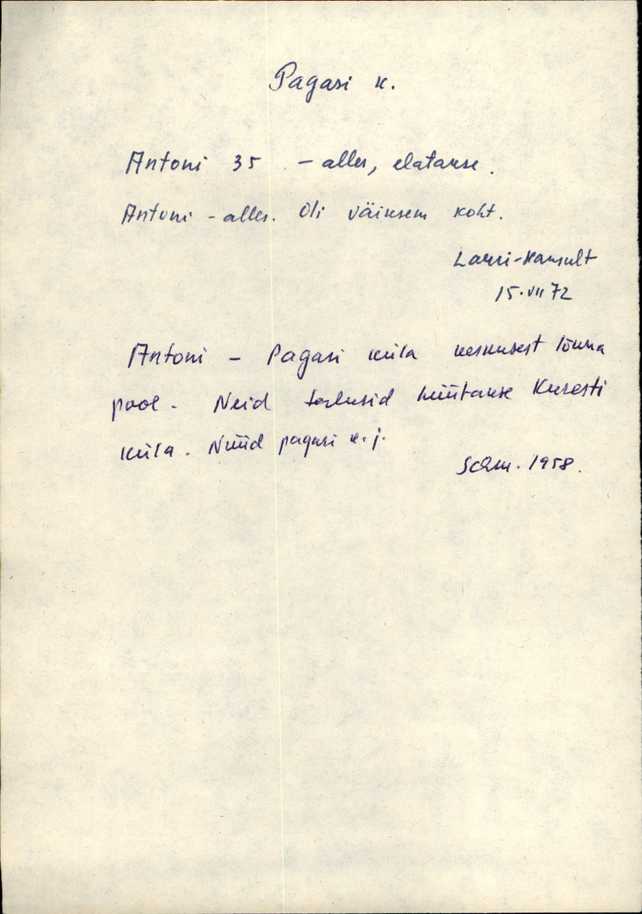 Pagari k.
Antoni 35 - alles, elatakse.
Antoni - alles. Oli väiksem koht.
Lauri-Hansult
15. VII 72
Antoni - Pagari küla keskusest lõuna
pool. Neid talusid hüütakse Kuresti
küla. Nüüd pagari k. j.
1958.